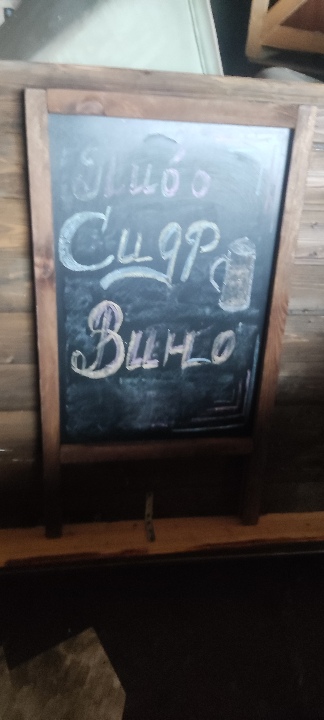 Пиво
Сидр
Вино